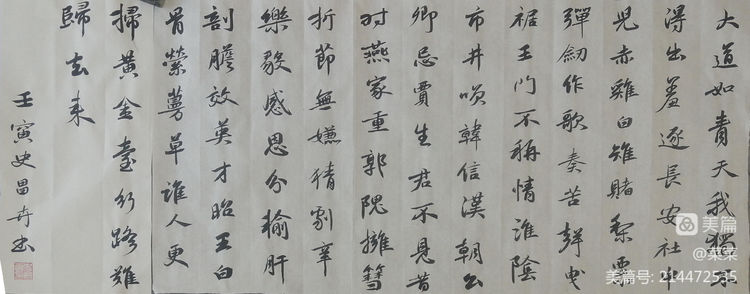 大道如青天我獨不
得出羞逐長安社中
兒赤雞白雉賭梨栗
彈劍作歌奏苦聲曳
裾王門不稱情淮陰
市井咲韓信漢朝公
卿忌賈生君不見昔
时燕家重郭隗擁篲
折節無嫌猜劇辛
樂毅感恩分輸肝
剖膽效英才昭王白
骨縈蔓草誰人更
掃黃金臺行路難
歸去来
壬寅史昌卉书
美篇
@菜菜
美篇号: 214472535